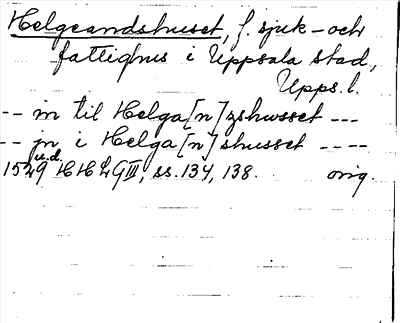 Helgeandshuset, f. sjuk- och
fattighus i Uppsala stad,
Upps. l.
-- in til Helga[n]zhwsset ---
-- jn i Helga[n]shusset ----
u.d.
1529 HHLGIII, ss. 134, 138. orig.